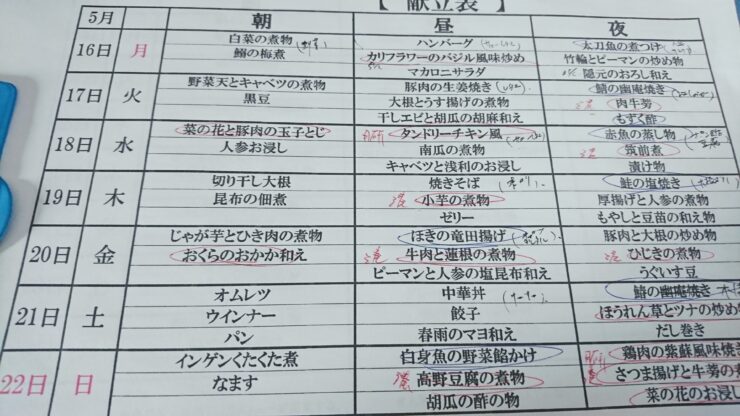 【 献立表 】
5月 朝 昼 夜
16日 月
白菜の煮物
鰤の梅煮
ハンバーグ
カリフラワーのバジル風味炒め
マカロニサラダ
太刀魚の煮つけ
竹輪とピーマンの炒め物
隠元のおろし和え
17日 火
野菜天とキャベツの煮物
黒豆
豚肉の生姜焼き
大根とうす揚げの煮物
干しエビと胡瓜の胡麻和え
鯖の幽庵焼き
肉牛蒡
もずく酢
18日 水
菜の花と豚肉の玉子とじ
人参お浸し
タンドリーチキン風
南瓜の煮物
キャベツと浅利のお浸し
赤魚の蒸し物
筑前煮
漬け物
19日 木
切り干し大根
昆布の佃煮
焼きそば
小芋の煮物
ゼリー
鮭の塩焼き
厚揚げと人参の煮物
もやしと豆苗の和え物
20日 金
じゃが芋とひき肉の煮物
おくらのおかか和え
ほきの竜田揚げ
牛肉と蓮根の煮物
ピーマンと人参の塩昆布和え
豚肉と大根の炒め物
ひじきの煮物
うぐいす豆
21日 土
オムレツ
ウインナー
パン
中華丼
餃子
春雨のマヨ和え
鰆の幽庵焼き
ほうれん草とツナの炒め物
だし巻き
22日 日
インゲンくたくた煮
なます
白身魚の野菜餡かけ
高野豆腐の煮物
胡瓜の酢の物
鶏肉の紫蘇風味焼き
さつま揚げと牛蒡の煮
菜の花のお浸し